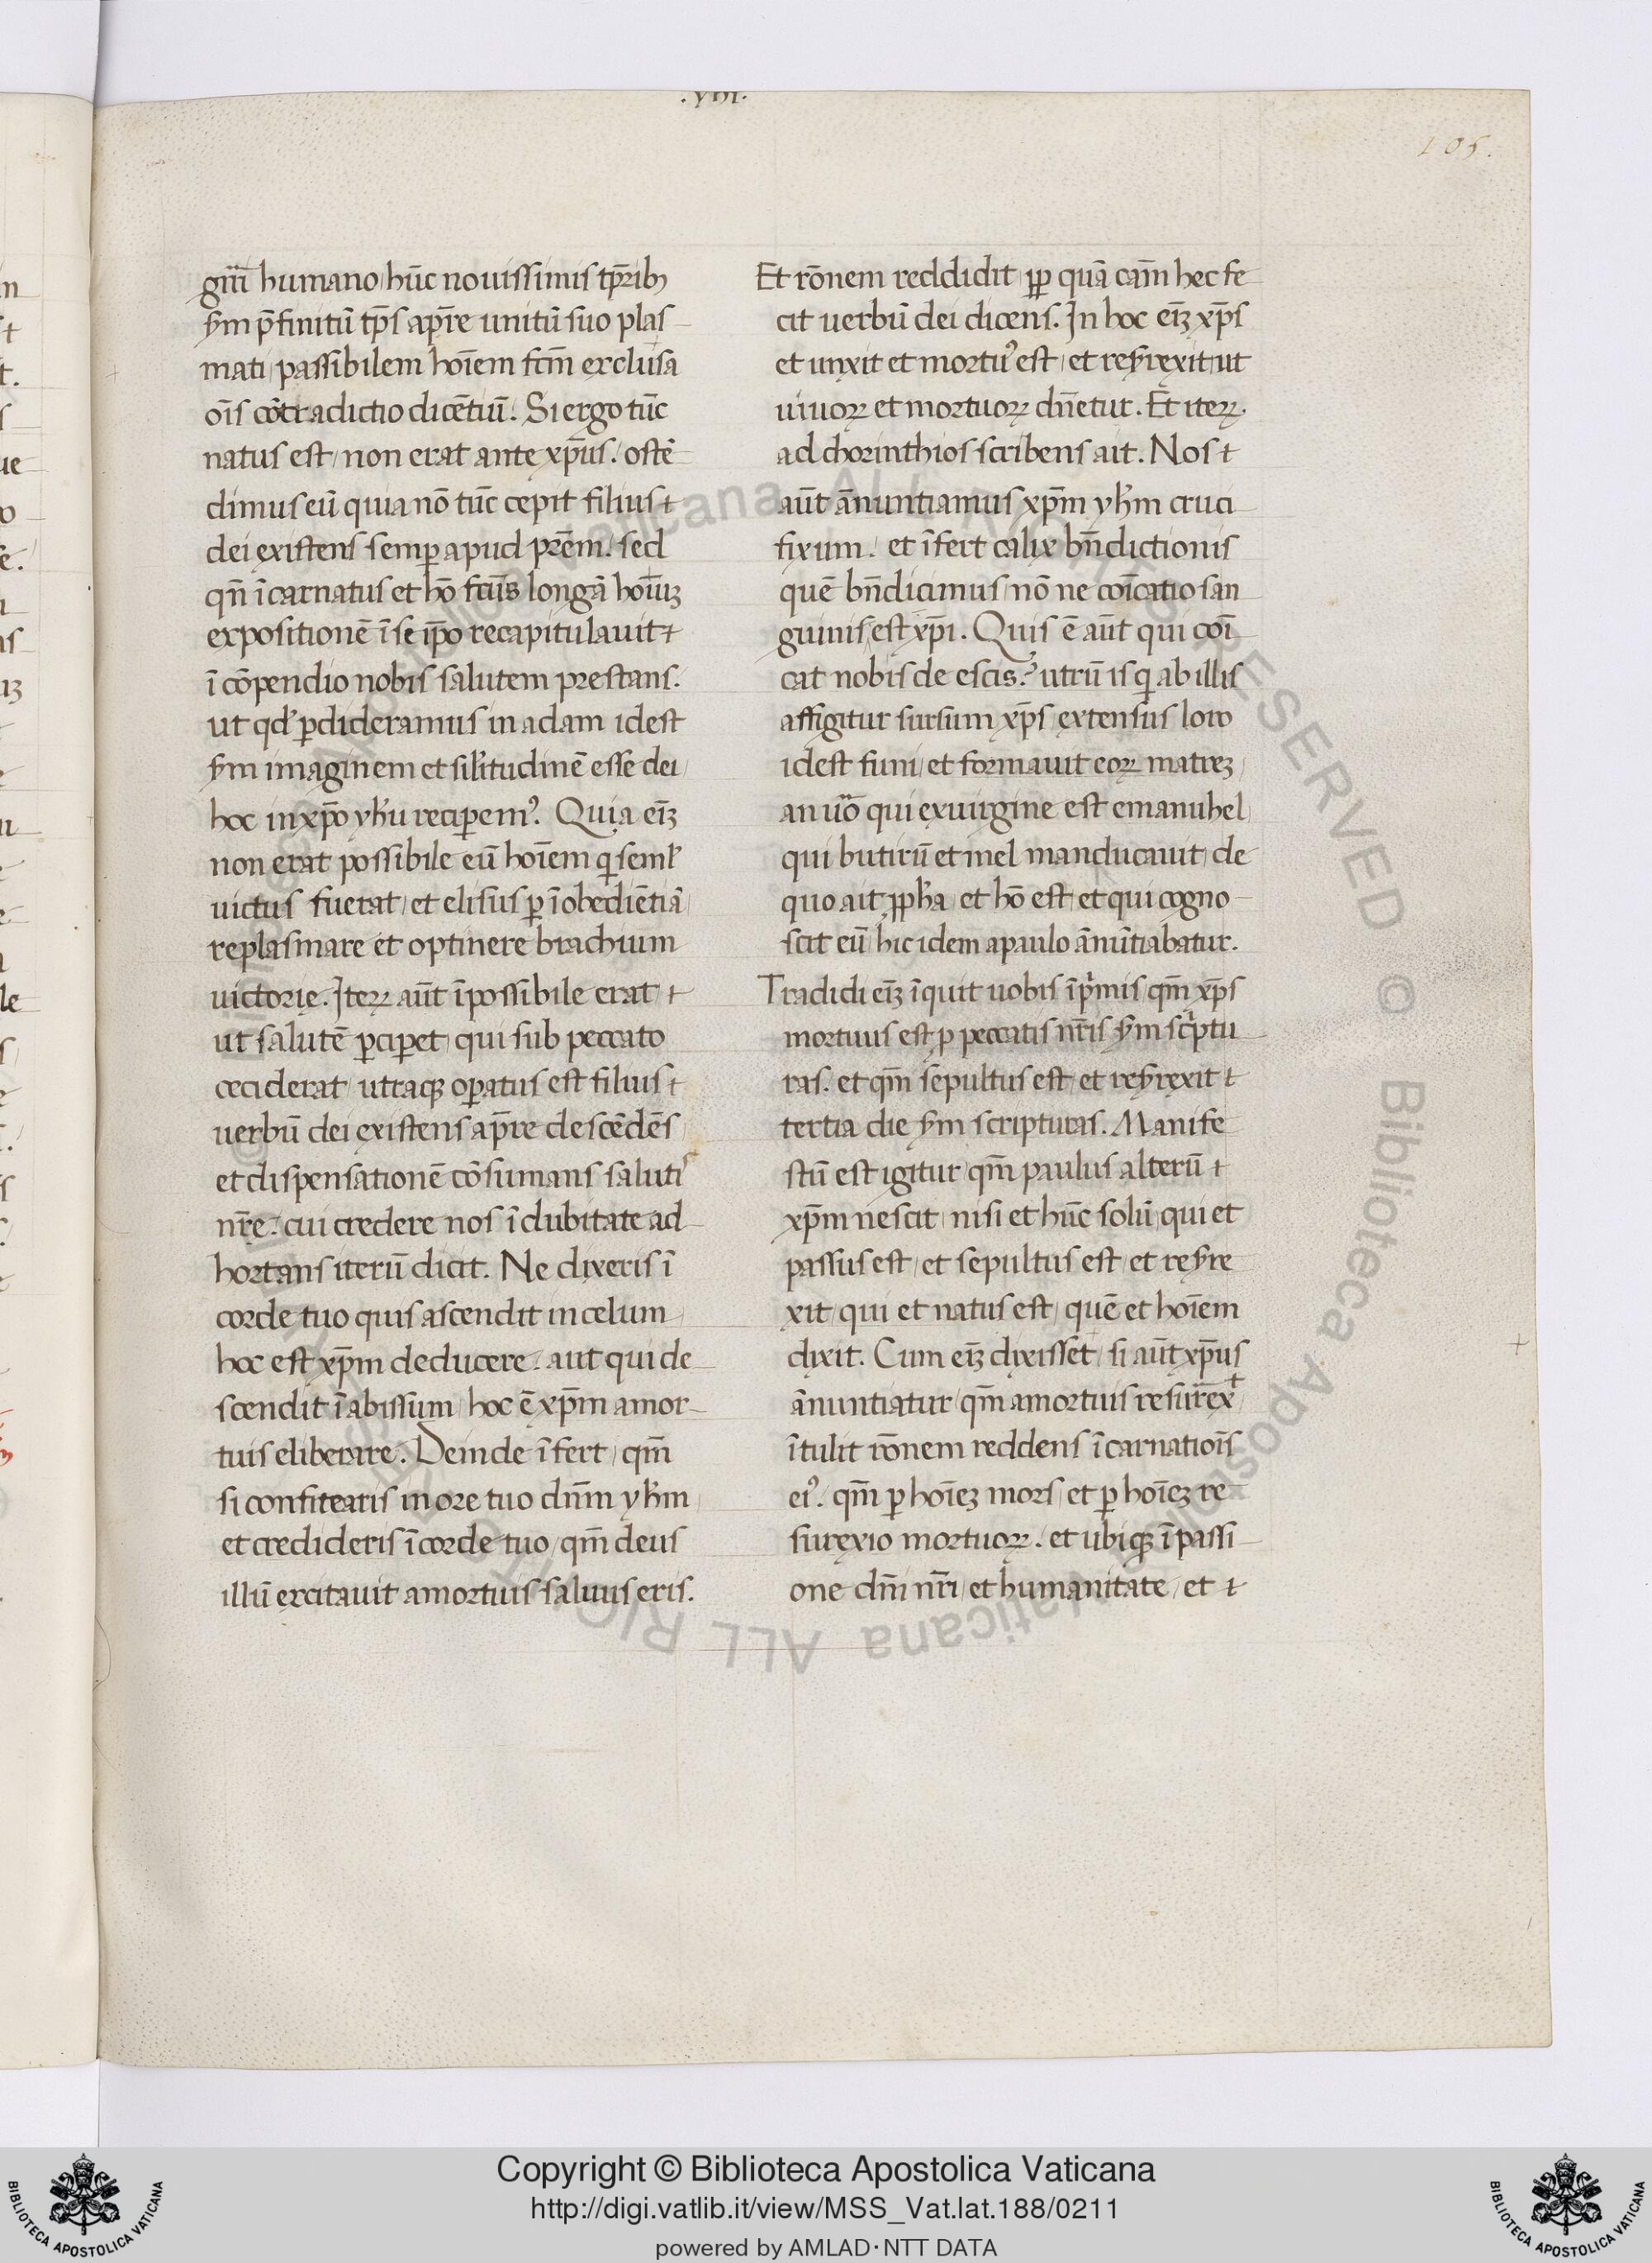 .VIII.
105.
gn̄ri humano hūc nouissimis tp̄rib;
s'm p̄finitū tp̄s ap̄re unitū suo plas
mati passibilem hoīem fcm̄ exclusa
oīs cōtradictio dicētiū. Si ergo tūc
natus est non erat ante xp̄us. ostē
dimus eū quia nō tūc cepit filius
dei existens semp̱ apud prēm. sed
qn̄ īcarnatus et hō fcūs longā hoīuȝ
expositionē ī se ip̄o recapitulauit
ī cōpendio nobis salutem prestans.
ut qd' ꝑdideramus in adam idest
s'm imaginem et sil'itudinē esse dei
hoc in xp̄o yh'u reciꝑemꝰ. Quia eīȝ
non erat possibile eū hoīem q̱ seml'
uictus fuerat et elisus ꝑ īobediētiā
replasmare et optinere brachium
uictorię. Iteꝝ aūt īpossibile erat
ut salutē ꝑciꝑet qui sub peccato
ceciderat utraqȝ oꝑatus est filius
uerbū dei existens ap̄re descēdēs
et dispensationē cōsumans saluti͛
nr̄ę. cui credere nos īdubitate ad
hortans iterū dicit. Ne dixeris ī
corde tuo quis ascendit in celum
hoc est xp̄m deducere. aut qui de
scendit ī abissum hoc ē xp̄m amor
tuis eliberare. Deinde īfert qm̄
si confitearis in ore tuo dn̄m yh'm
et credideris ī corde tuo qm̄ deus
illū excitauit amortuis saluus eris.
Et rōnem reddidit ꝓp quā cam̄ hec fe
cit uerbū dei dicens. In hoc eīȝ xp̄s
et uixit et mortuꝰ est et res'rexit ut
uiuoꝝ et mortuoꝝ dn̄etur. Et iteꝝ.
ad chorinthios scribens ait. Nos
aūt ānuntiamus xp̄m yh'm cruci
fixum. et īfert calix bn̄dictionis
quē bn̄dicimus nō ne coīcatio san
guinis est xp̄i. Quis ē aūt qui coī
cat nobis de escis? utrū is q̱ ab illis
affigitur sursum xp̄s extensus loro
idest funi et formauit eoꝝ matreȝ
an uō qui ex uirgine est emanuhel
qui butirū et mel manducauit de
quo ait ꝓph'a et hō est et qui cogno
scit eū hic idem apaulo ānūtiabatur.
Tradidi eīȝ īquit uobis īprimis qm̄ xp̄s
mortuus est ꝓ peccatis nr̄is s'm scriptu
ras. et qm̄ sepultus est et res'rexit
tertia die s'm scripturas. Manife
stū est igitur qm̄ paulus alterū
xp̄m nescit nisi et hūc solū qui et
passus est et sepultus est et res're
xit qui et natus est quē et hoīem
dixit. Cum eīȝ dixisset si aūt xp̄us
ānuntiatur qm̄ amortuis resūrex
ītulit rōnem reddens īcarnatioīs
eiꝰ. qm̄ ꝑ hoīeȝ mors et ꝑ hoīeȝ re
surexio mortuoꝝ. et ubiqȝ ī passi
one dn̄i nr̄i et humanitate et
© Biblioteca Apostolica Vaticana ALL RIGHTS RESERVED © Biblioteca Apostolica Vaticana ALL RIGHTS RESERVED
Copyright © Biblioteca Apostolica Vaticana
http://digi.vatlib.it/view/MSS_Vat.lat.188/0211
powered by AMLAD·NTT DATA
BIBLIOTECA APOSTOLICA VATICANA
BIBLIOTECA APOSTOLICA VATICANA